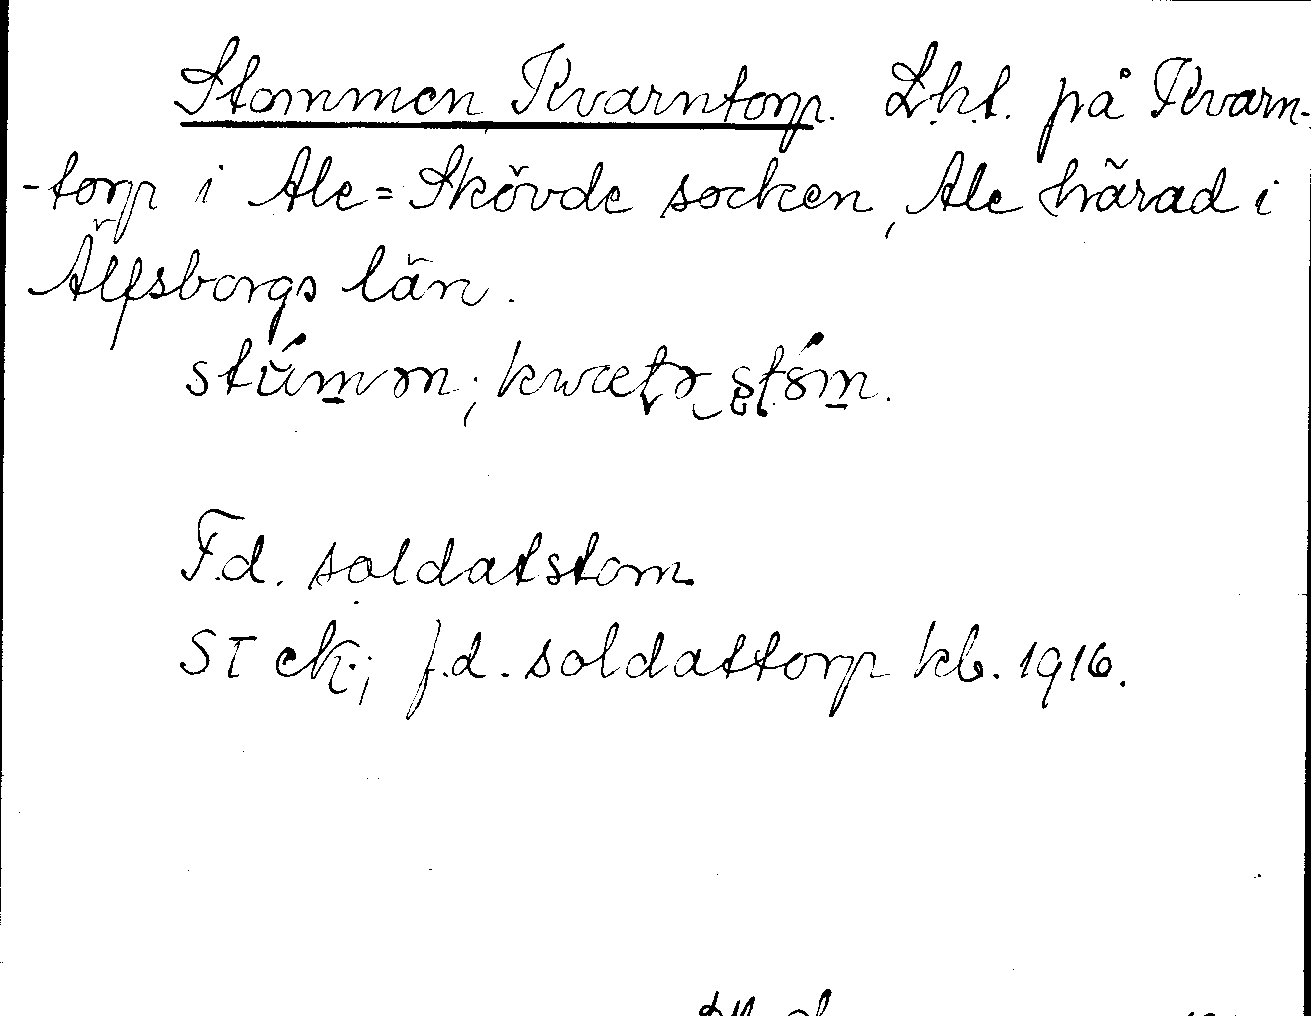 Stommen Kvarntorp. Lht. på Kvarn-
-torp i Ale=Skövde socken, Ale härad i
Älfsborgs län.
F.d. soldatstom
ST ek.; f.d. soldattorp kb. 1916.